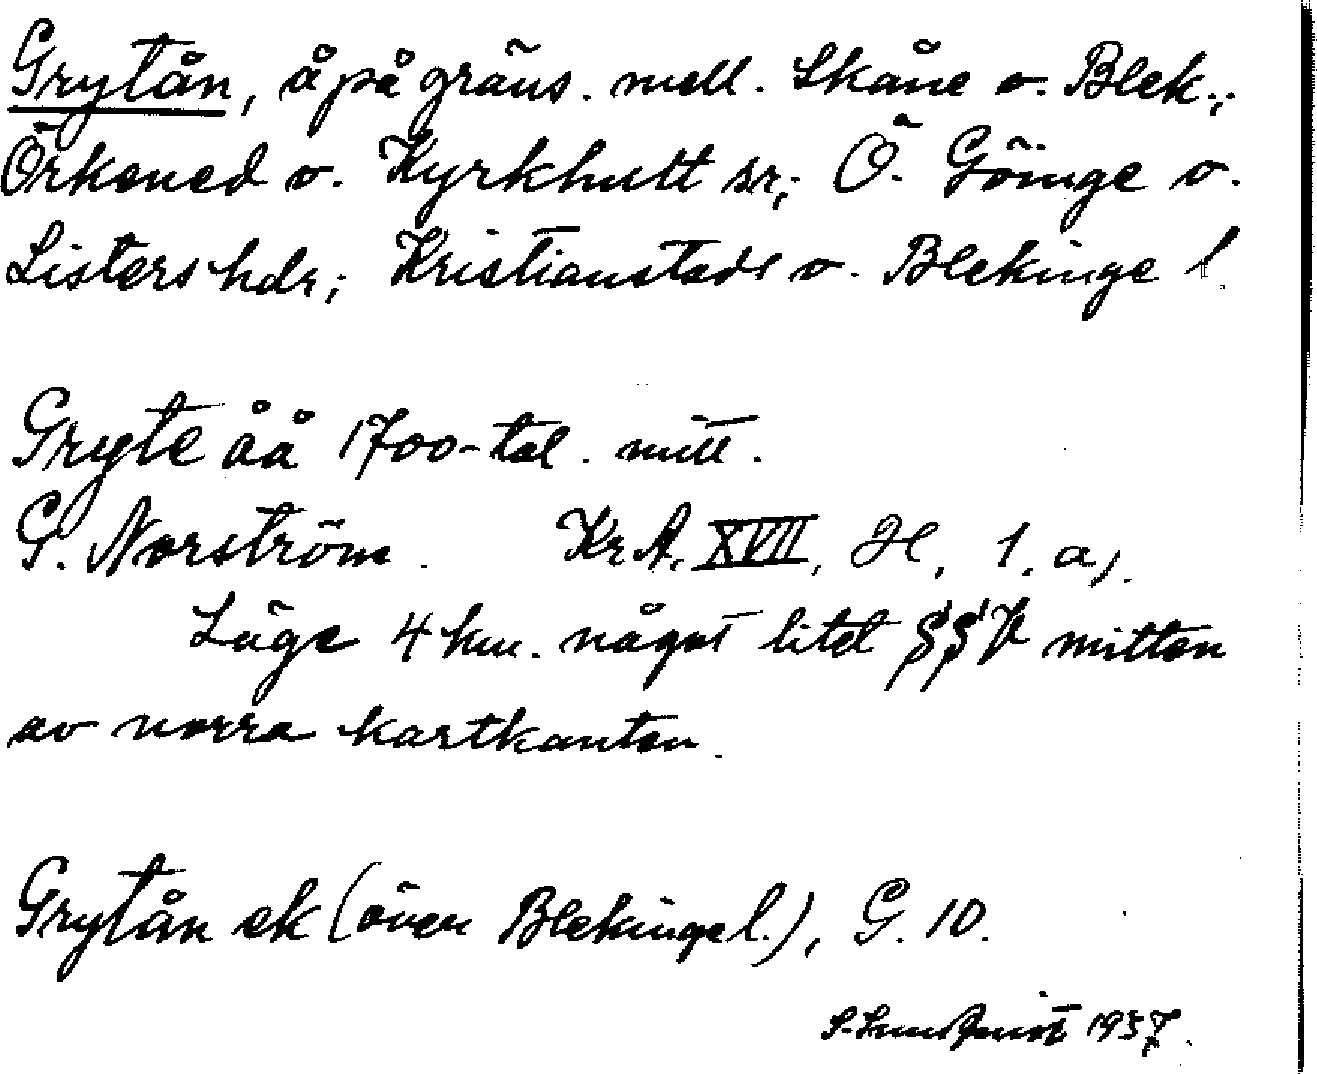 Grytån, å på gräns. mell. Skåne o. Blek.;
Örkened o. Kyrkhult sr; Ö. Göinge o.
Listers hdr; Kristianstads o. Blekinge l.
Gryte åå 1700-tal. mitt.
G. Norström. KrA, XVII, H, 1. a,.
Läge 4 km. något litet SSV mitten
av norra kartkanten.
Grytån ek (över Blekinge l.), G. 10.
S. Lundquist 1937.